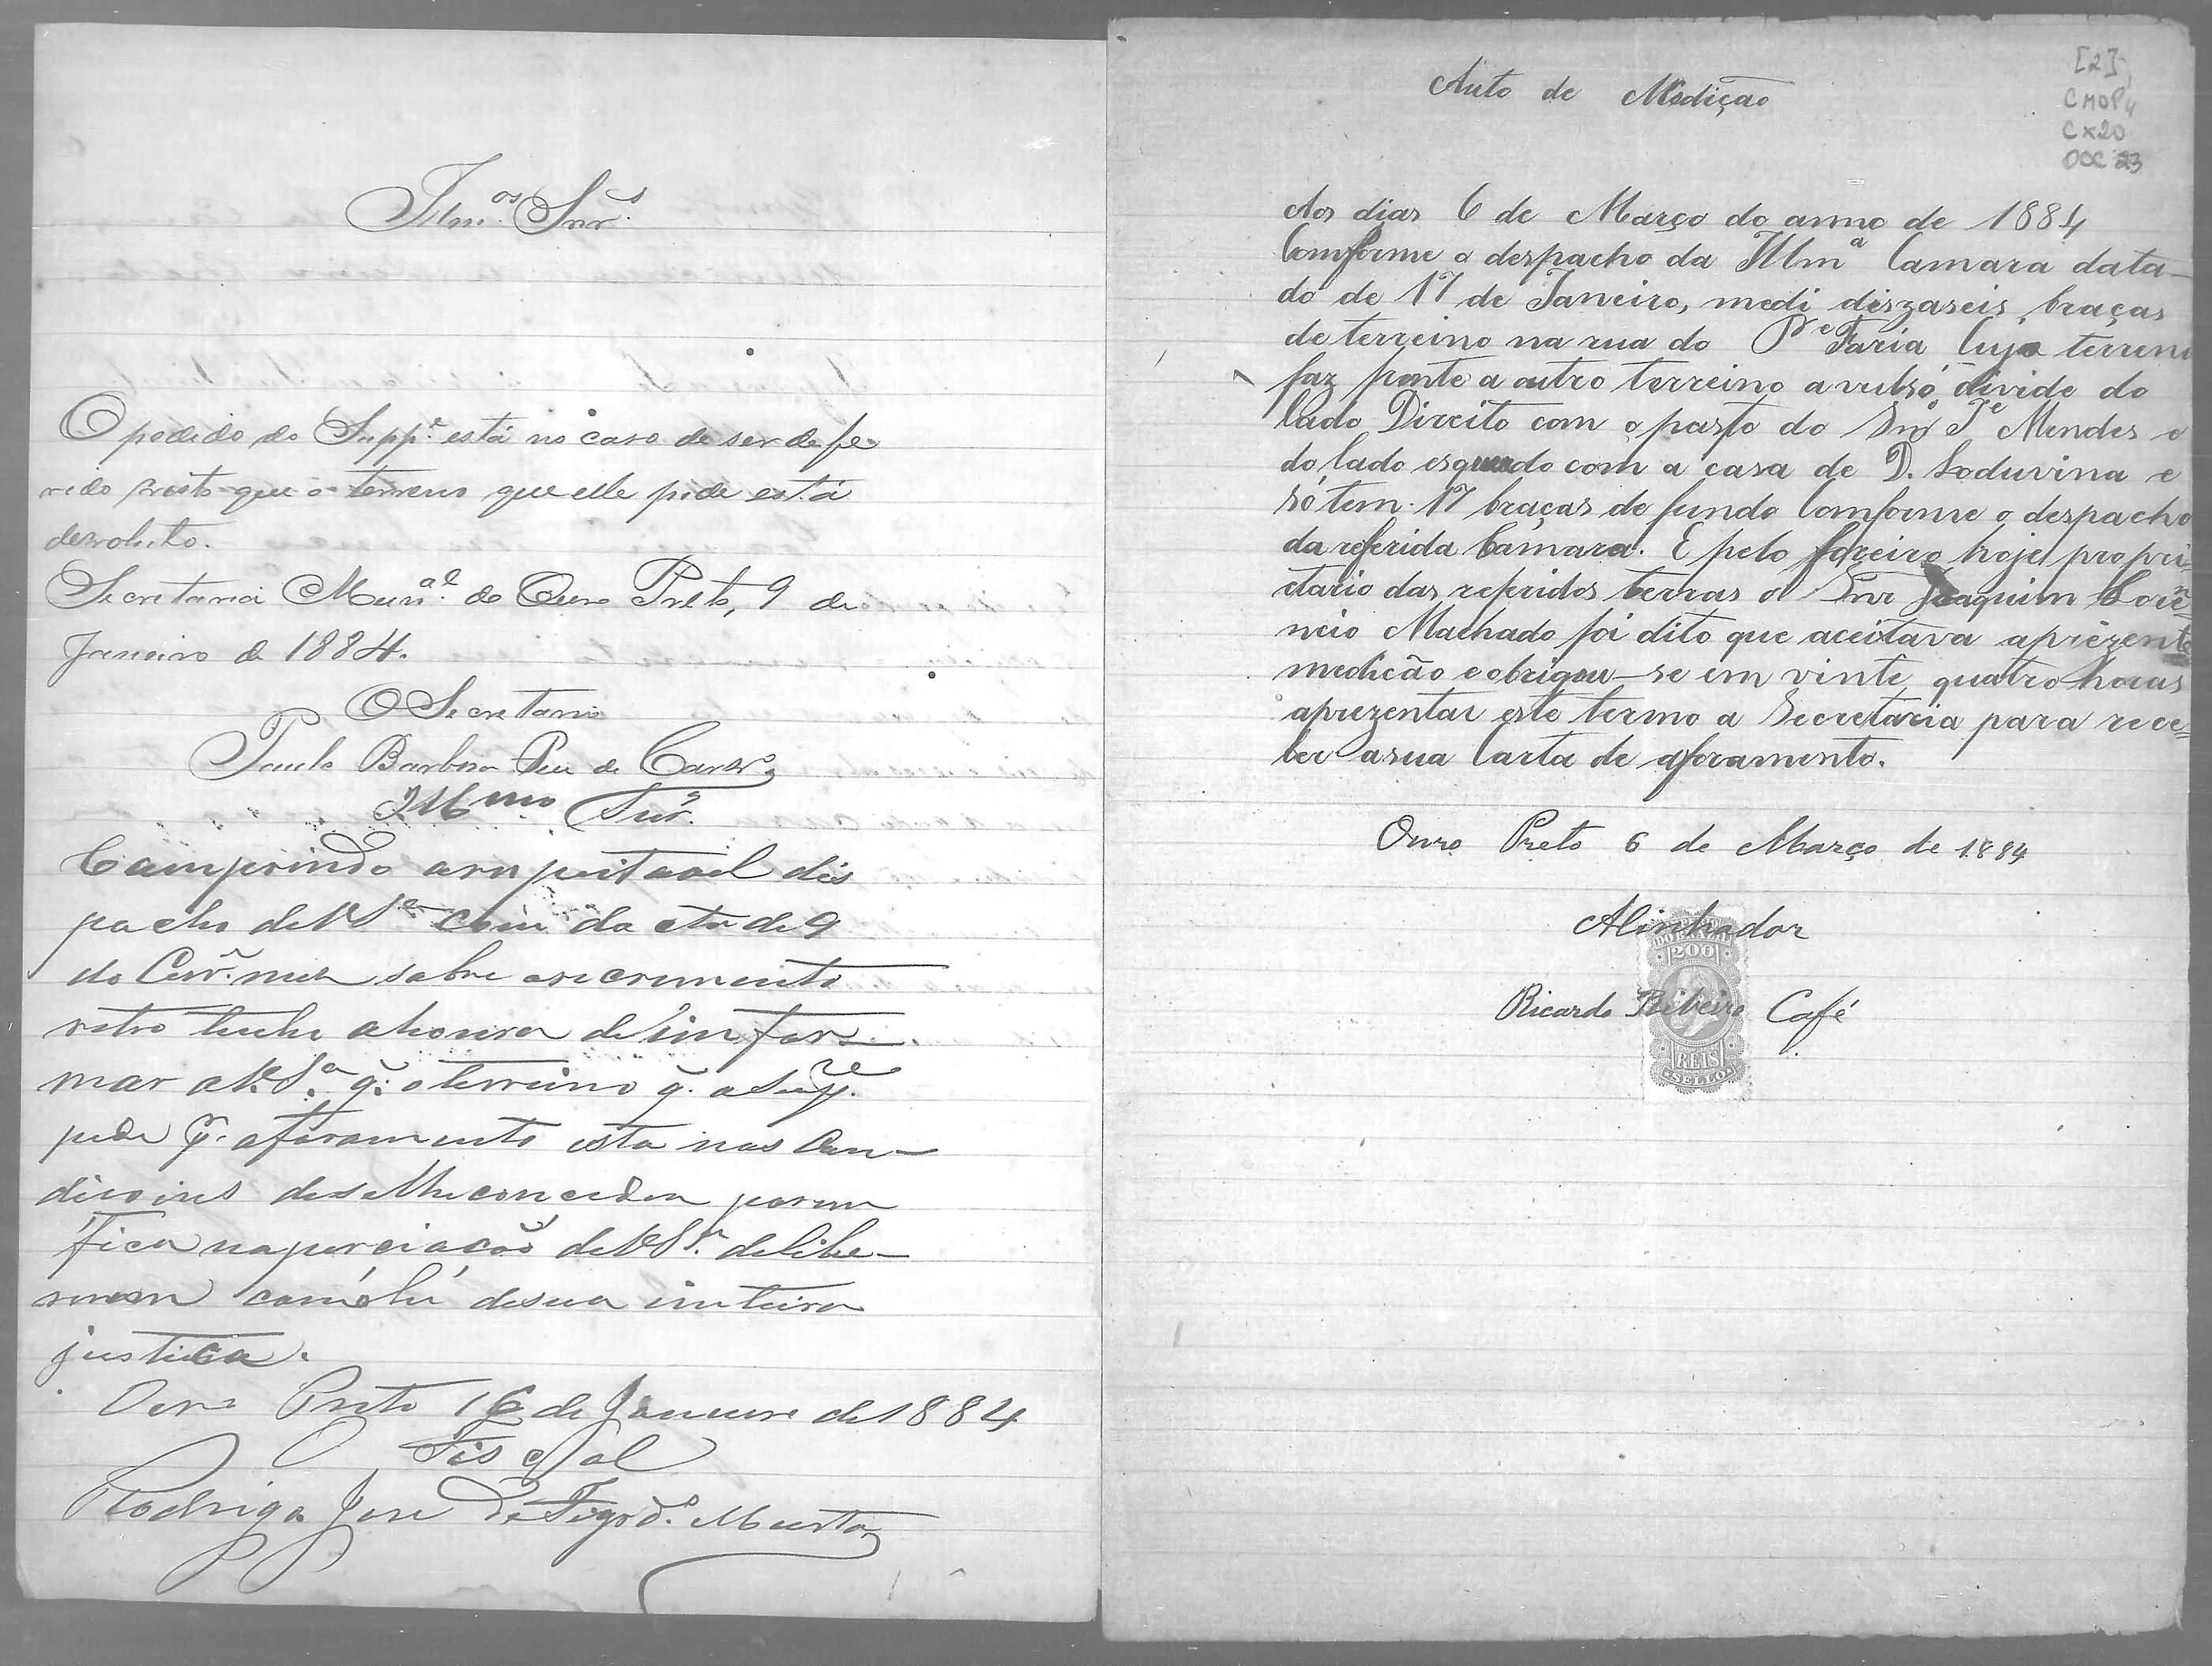 Illm.os Snr.s
O pedido do Supp.e está no caso de ser defe-
rido visto que o terreno que elle pede está
devoluto.
Secretaria Mun.al de Ouro Preto, 9 de
Janeiro de 1884.
O Secretario
Paulo Barbosa
Illmo Snr.
Comprindo a respeitavel dis
pacho de V.S.ª com data de 9
do Corr.e mes sobre o recrumento
retro tenho a honra de infor-
mar a V.S.ª q. o terreino q. a Supp.e
pede p.r aforamento esta nas Con-
dicoins de se lhe conceder porem
fica naperciacão de V.Sª. delibe-
rarem como lhi desua inteira
justica.
Ouro Preto 16 de Janeiro de 1884
O Fiscal
Rodrigo Jose de Figrd.o Murta
Auto de Medição
[2]
CMOP
CX20
DOC 23
Aos dias 6 de Março do anno de 1884
Comforme o despacho da Illmª Camara data-
do de 17 de Janeiro, medi dezaseis braças
de terreino na rua do Pe Faria Cujo terreno
faz frente a outro terreino avulso, divide do
lado Direito com o pasto do Snr Je Mendes e
do lado esquerdo com a casa de D. Loduvina e
só tem 17 braças de fundo Comforme o despacho
da referida Camara. E pelo foreiro hoje propri-
etario das referidos terras o Snr Joaquim
Machado foi dito que aceitava aprezente
medicão e obrigou-se em vinte quatro horas
aprezentar este termo a Secretaria para rece=
ber asua Carta de aforamento.
Ouro Preto 6 de Março de 1884
Alinhador
Ricardo Ribeiro Café
200
REIS
SELLO